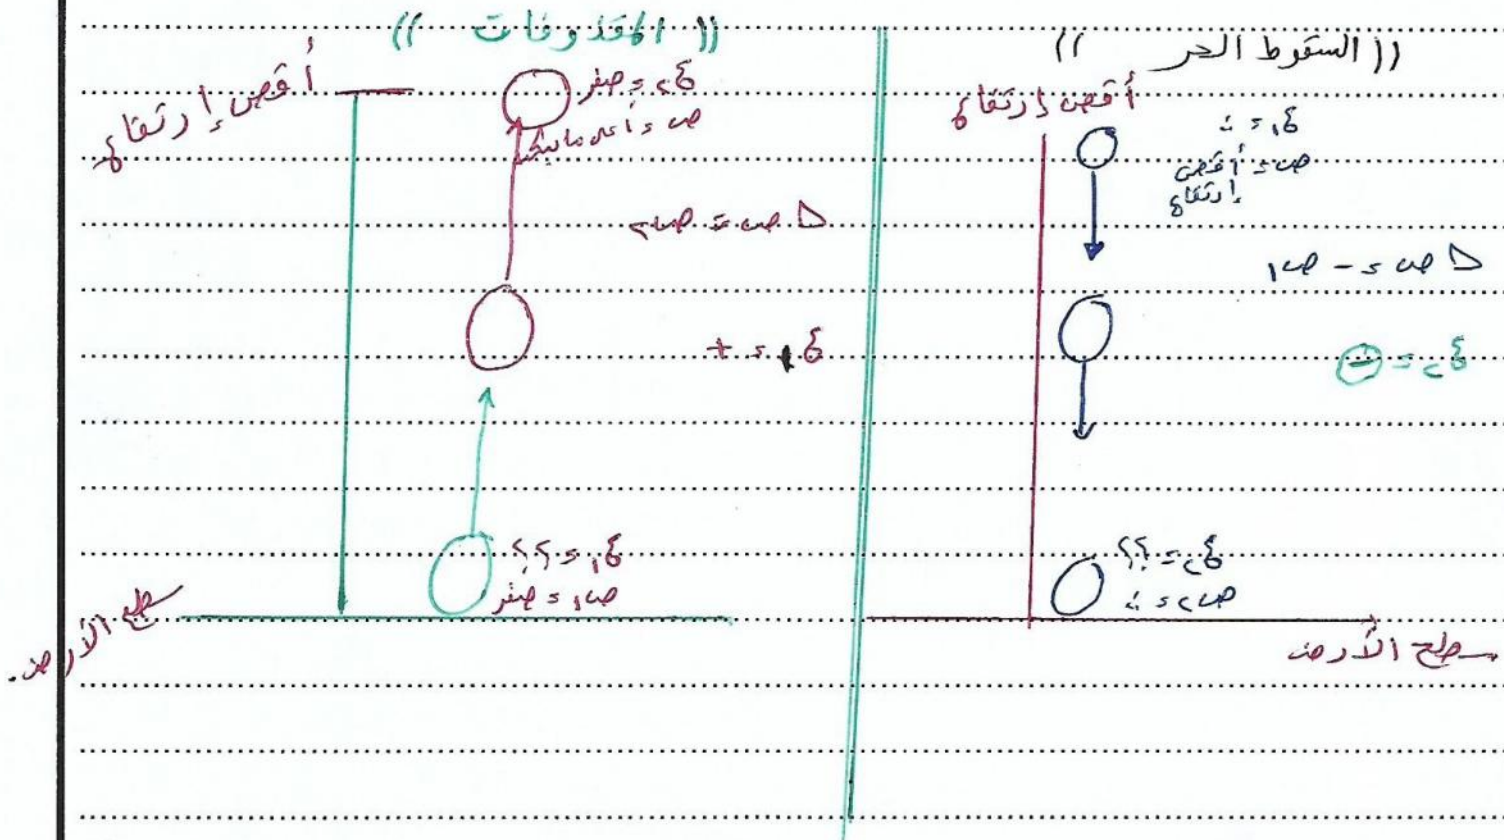 (( السقوط الحر ))
أقصى إرتفاع
ع١ = ٠
ص١ = أقصى
إرتفاع
Δ ص = - ص١
ع٢ = ⊖
ع٢ = ؟؟
ص٢ = ٠
سطح الأرض
(( المقذوفات ))
أقصى إرتفاع
ع٢ = صفر
ص = أعلى ما يمكن
Δ ص = ص٢
ع١ = +
ع١ = ؟؟
ص١ = صفر
سطح الأرض.